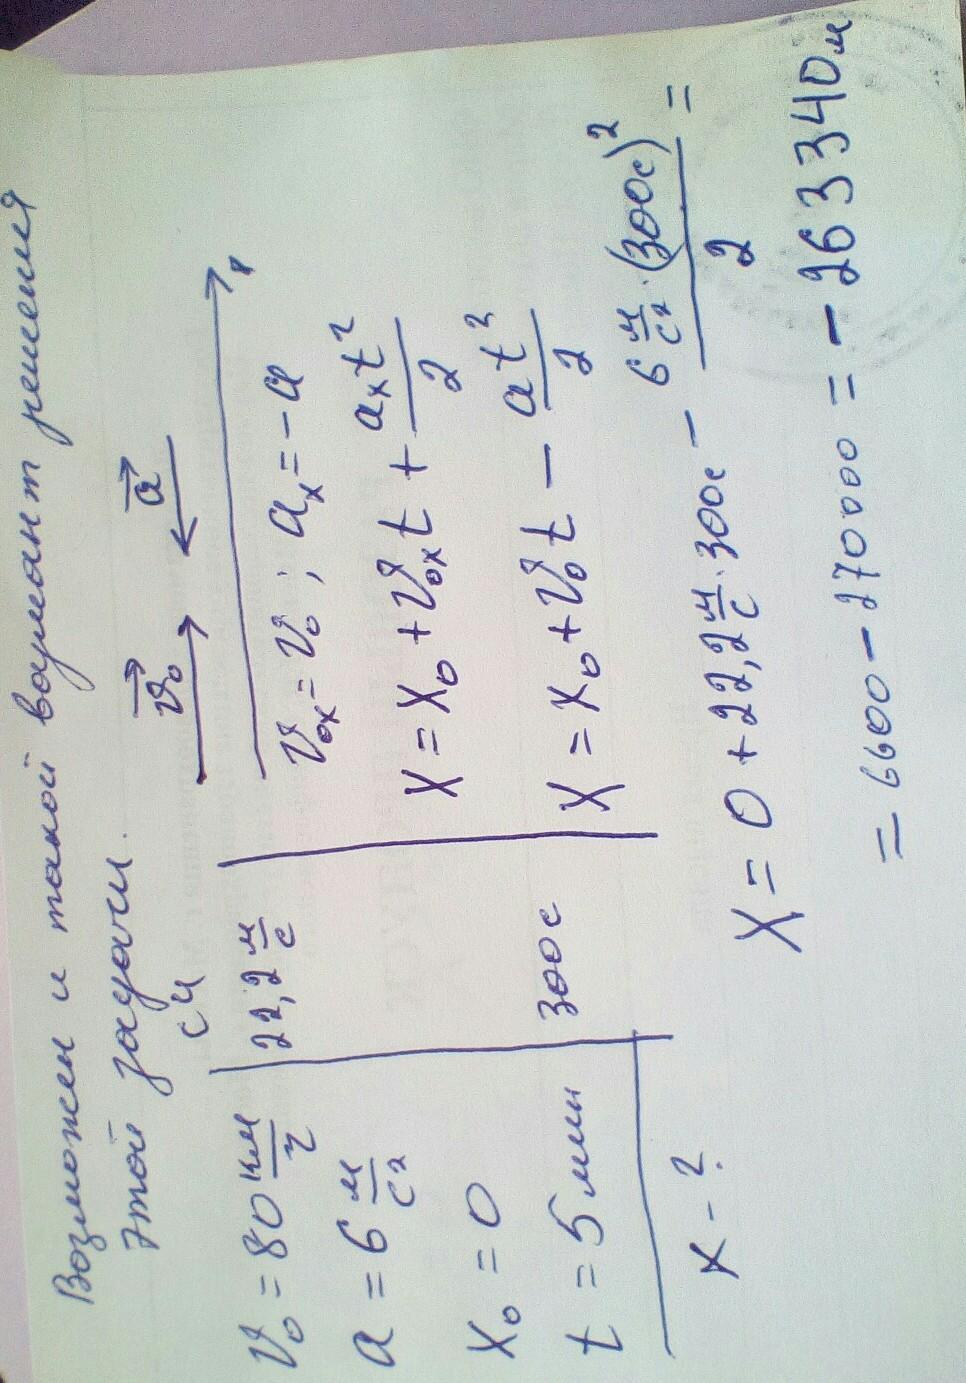 Возможен и такой вариант решения
этой задачи.
СИ
v₀ = 80 км/ч
22,2 м/с
a = 6 м/с²
x₀ = 0
t = 5 мин
300 с
x - ?
v₀ a
x
v₀ₓ = v₀ ; aₓ = -a
x = x₀ + v₀ₓt + aₓt²/2
x = x₀ + v₀t - at²/2
x = 0 + 22,2 м/с · 300с - 6 м/с² · (300с)²/2 =
= 6600 - 270000 = - 263340м